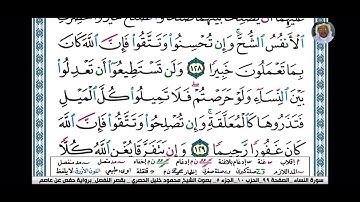 ٱلْأَنفُسُ ٱلشُّحَّ وَإِن تُحْسِنُوا۟ وَتَتَّقُوا۟ فَإِنَّ ٱللَّهَ كَانَ
بِمَا تَعْمَلُونَ خَبِيرًا ١٢٨ وَلَن تَسْتَطِيعُوٓا۟ أَن تَعْدِلُوا۟
بَيْنَ ٱلنِّسَآءِ وَلَوْ حَرَصْتُمْ فَلَا تَمِيلُوا۟ كُلَّ ٱلْمَيْلِ
فَتَذَرُوهَا كَٱلْمُعَلَّقَةِ وَإِن تُصْلِحُوا۟ وَتَتَّقُوا۟ فَإِنَّ ٱللَّهَ
كَانَ غَفُورًا رَّحِيمًا ١٢٩ وَإِن يَتَفَرَّقَا يُغْنِ ٱللَّهُ كُلًّا
سورة النساء_الصفحة ٩٩_الحزب ١٠_الجزء ٥_بصوت الشيخ محمود خليل الحصري _ بقصر المنفصل برواية حفص عن عاصم